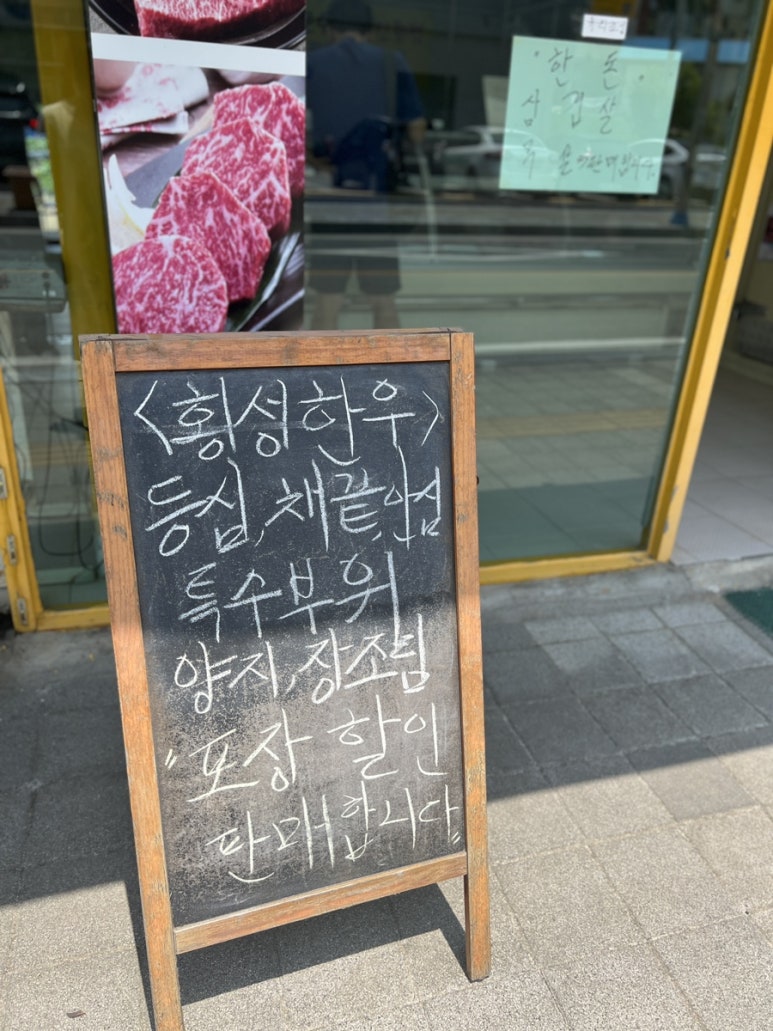 · 한 돈 ·
삼 겹 살
판매합니다
<횡성한우>
등심, 채끝, 안심
특수부위
양지, 장조림
"포장 할인
판매합니다"